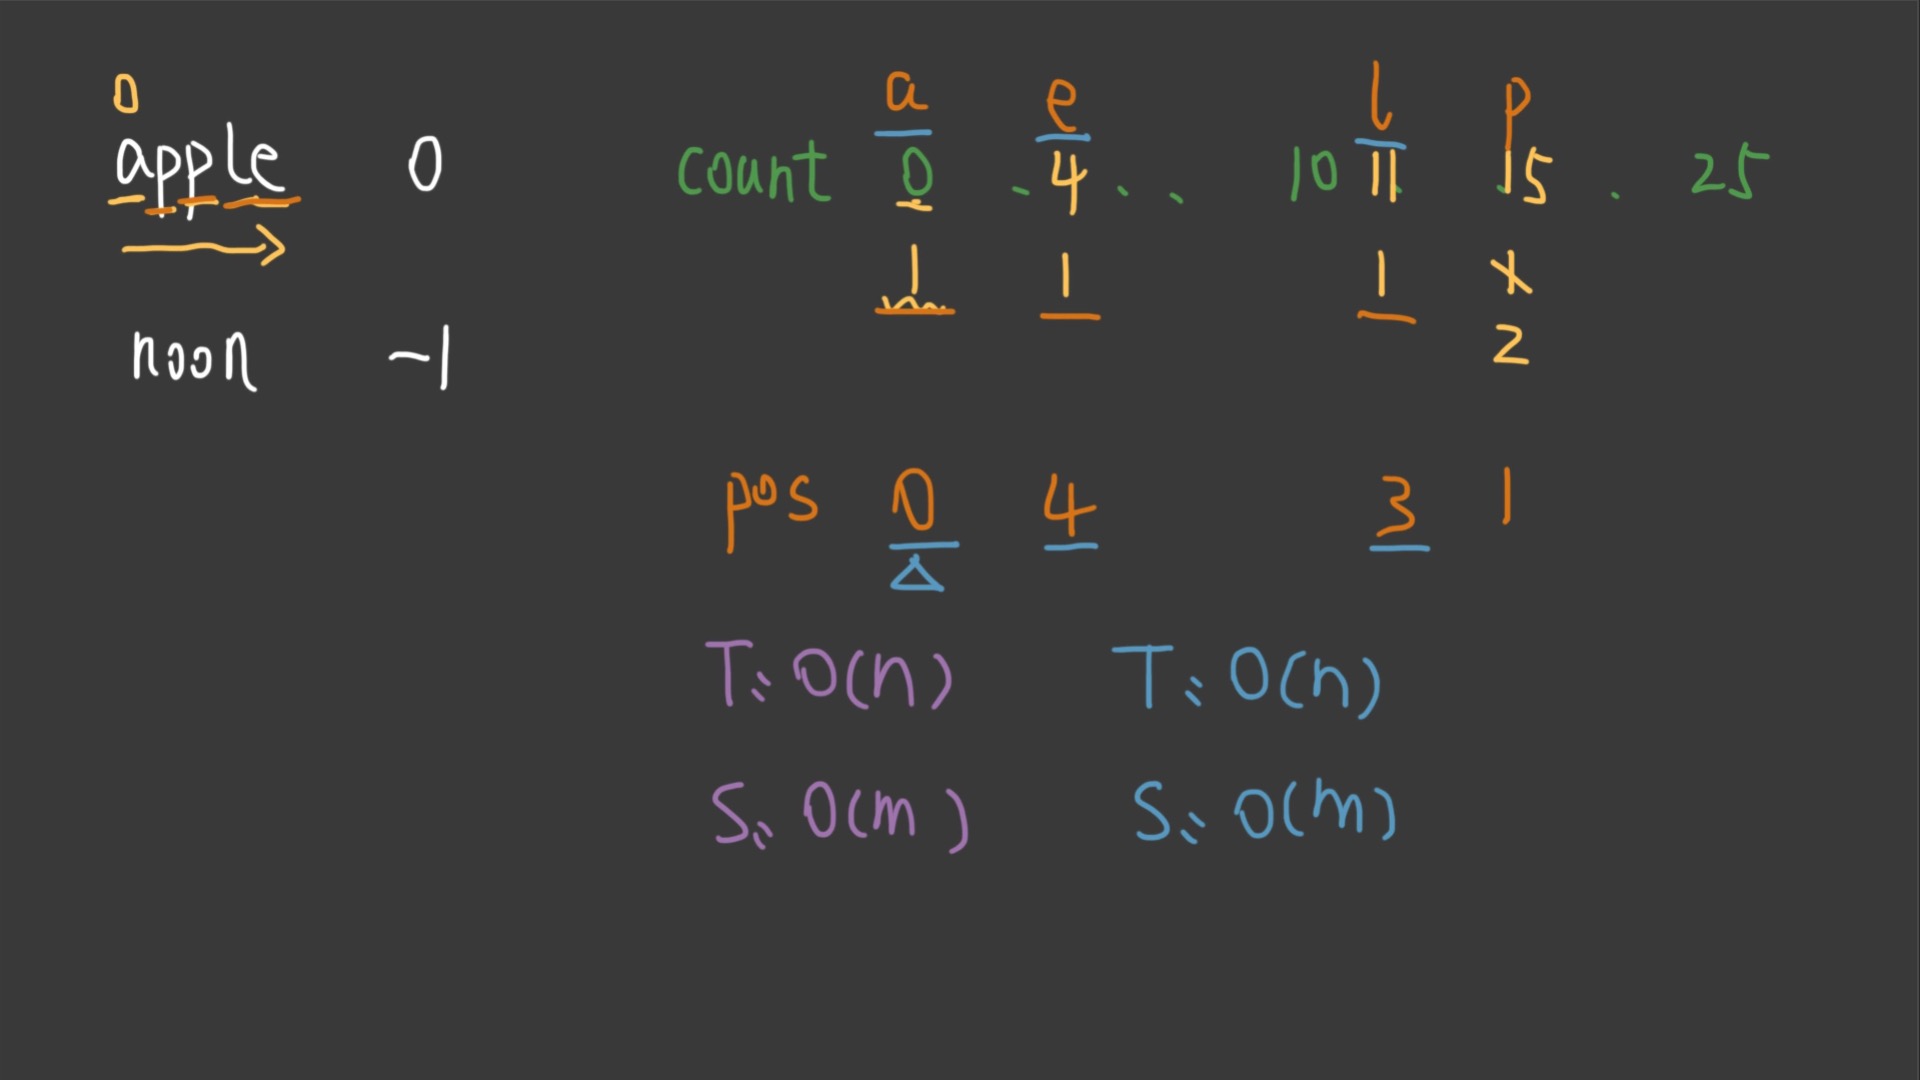 0
apple 0
noon -1
a e l p
count 0 . 4 . . 10 11 15 . 25
1 1 1 1
2
pos 0 4 3 1
T: O(n) T: O(n)
S: O(m) S: O(m)